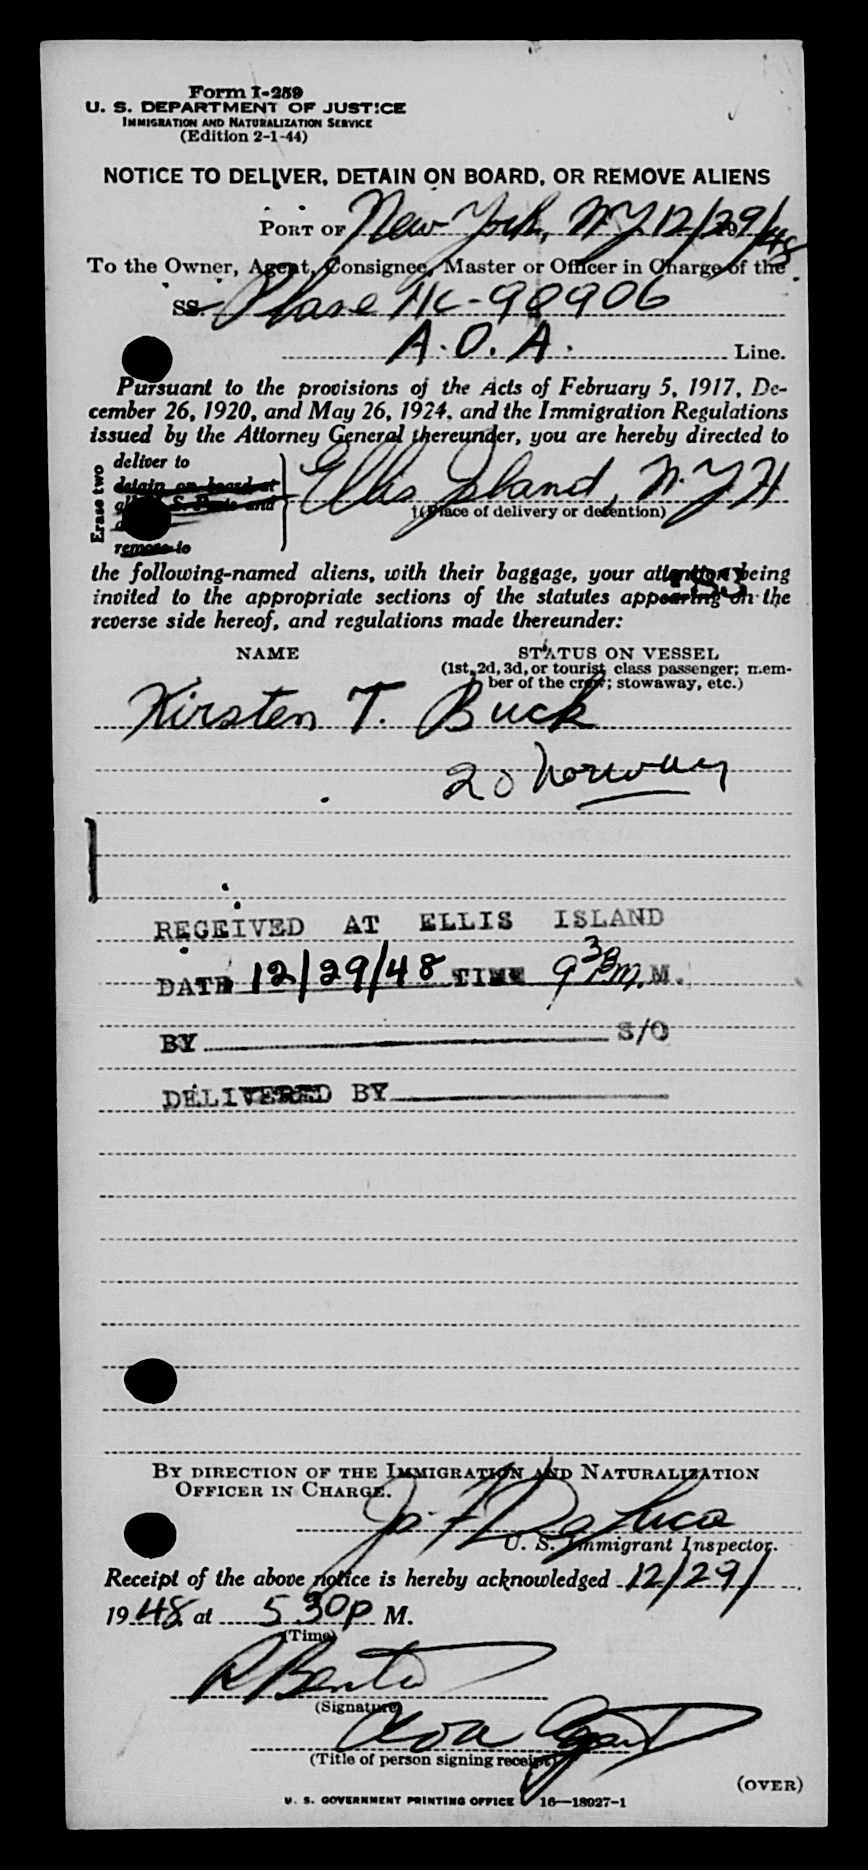 Form I-259
U. S. DEPARTMENT OF JUSTICE
IMMIGRATION AND NATURALIZATION SERVICE
(Edition 2-1-44)
NOTICE TO DELIVER, DETAIN ON BOARD, OR REMOVE ALIENS
PORT OF New York, N.Y. 12/29/48
To the Owner, Agent, Consignee, Master or Officer in Charge of the
SS. Plane NC-90906
A.O.A. Line.
Pursuant to the provisions of the Acts of February 5, 1917, De-
cember 26, 1920, and May 26, 1924, and the Immigration Regulations
issued by the Attorney General thereunder, you are hereby directed to
Erase two
deliver to
detain on board at
remove to
Ellis Island, N.Y.H
†(Place of delivery or detention)
the following-named aliens, with their baggage, your attention being
183
invited to the appropriate sections of the statutes appearing on the
reverse side hereof, and regulations made thereunder:
NAME STATUS ON VESSEL
(1st, 2d, 3d, or tourist class passenger; mem-
ber of the crew; stowaway, etc.)
Kirsten T. Buck
20 Norway
RECEIVED AT ELLIS ISLAND
DATE 12/29/48 TIME 9 30 P.M. M.
BY S/O
DELIVERED BY
BY DIRECTION OF THE IMMIGRATION AND NATURALIZATION
OFFICER IN CHARGE.
U. S. Immigrant Inspector.
Receipt of the above notice is hereby acknowledged 12/29/
1948 at 5 30 P M.
(Time)
(Signature)
Aoa Agent
(Title of person signing receipt)
(OVER)
U. S. GOVERNMENT PRINTING OFFICE 16—18927-1